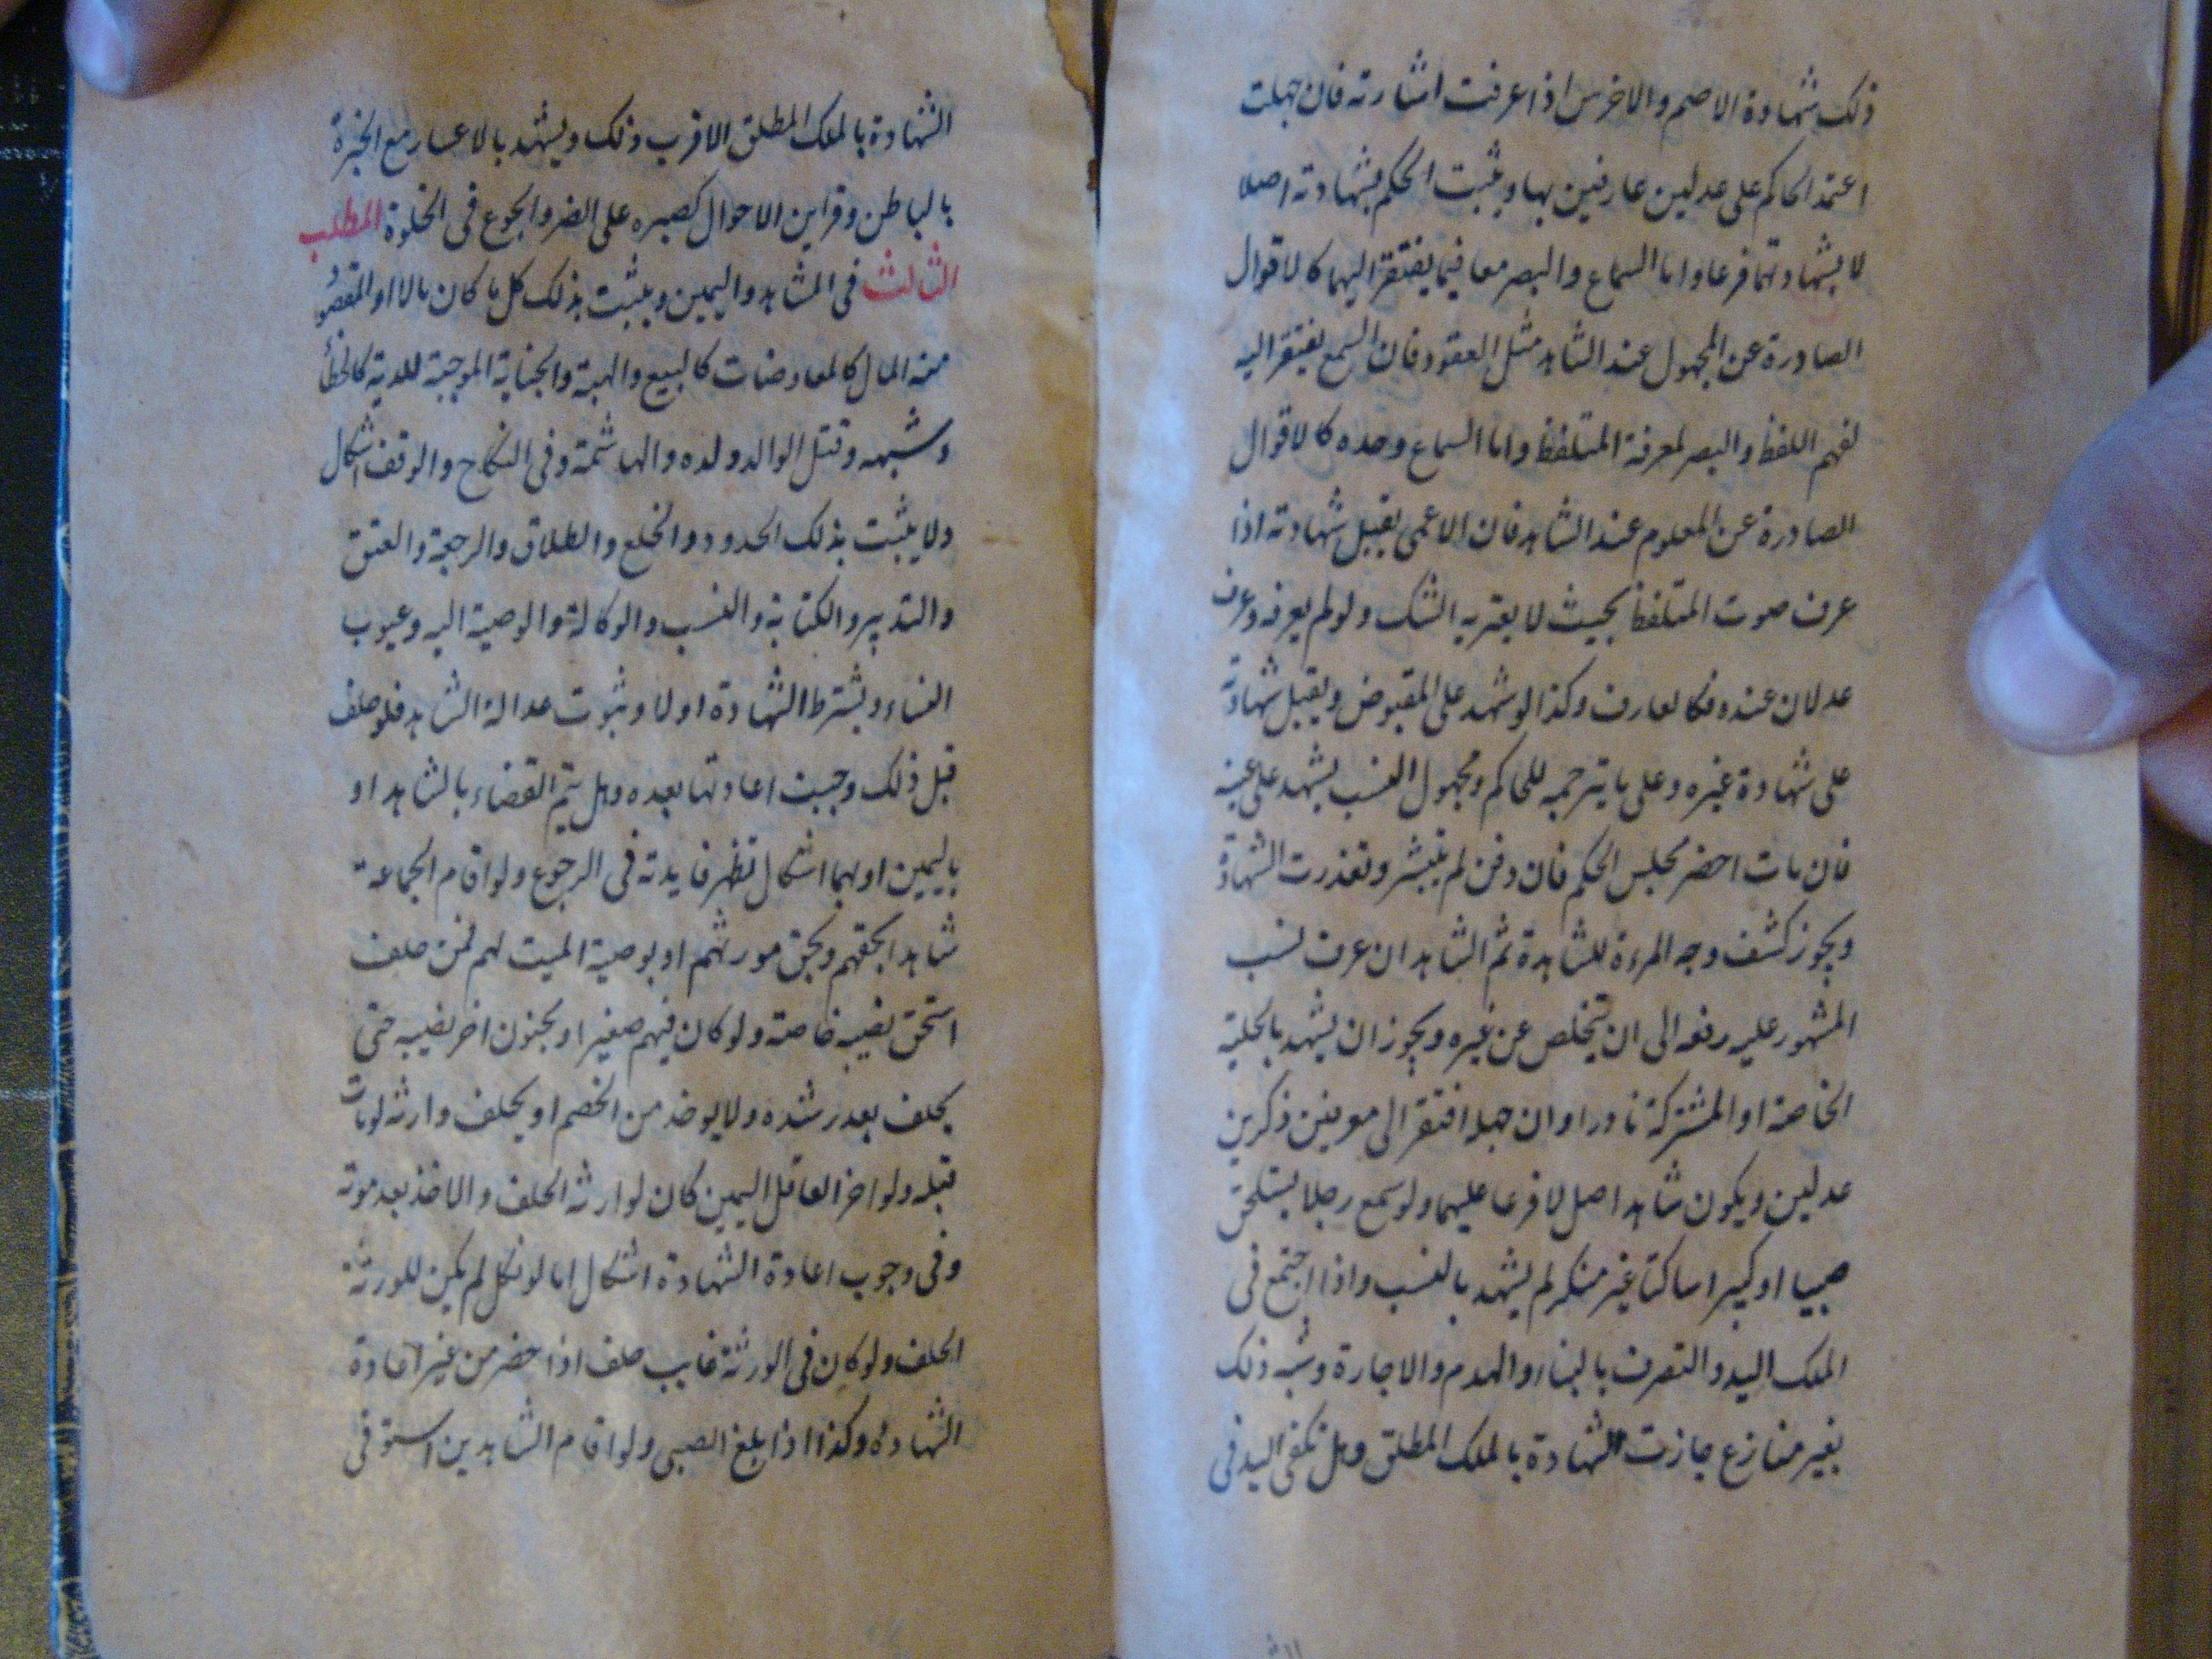 ذلك شهادة الاصم والاخرس اذا عرفت اشارته فان جهلت
اعتمد الحاكم على عدلين عارفين بها ويثبت الحكم بشهادته اصلا
لا بشهادتهما فرعا واما السماع والبصر معا فيما يفتقر اليهما كالاقوال
الصادرة عن المجهول عند الشاهد مثل العقود فان السمع يفتقر اليه
لفهم اللفظ والبصر لمعرفة المتلفظ واما السماع وحده كالاقوال
الصادرة عن المعلوم عند الشاهد فان الاعمى يقبل شهادته اذا
عرف صوت المتلفظ بحيث لا يعتريه الشك ولو لم يعرفه وعرف
عدلان عنده فكالعارف وكذا لو شهد على المقبوض ويقبل شهادته
على شهادة غيره وعلى ما يترجمه للحاكم ومجهول النسب يشهد على عينه
فان مات احضر مجلس الحكم فان دفن لم ينبش وتعذرت الشهادة
ويجوز كشف وجه المرءة للشاهدة ثم الشاهد ان عرف نسب
المشهور عليه رفعه الى ان يتخلص عن غيره ويجوز ان يشهد بالحلية
الخاصة او المشتركة نادرا وان جهله افتقر الى معرفين ذكرين
عدلين ويكون شاهد اصل لا فرعا عليهما ولو سمع رجلا يستلحق
صبيا او كبيرا ساكتا غير منكر لم يشهد بالنسب واذا اجتمع في
الملك اليد والتصرف بالبناء والهدم والاجارة وشبه ذلك
بغير منازع جازت الشهادة بالملك المطلق وهل تكفى اليد في
الشهادة بالملك المطلق الاقرب ذلك ويشهد بالاعسار مع الخبرة
بالباطن وقراين الاحوال كصبره على الضر والجوع في الخلوة المطلب
الثالث في الشاهد واليمين ويثبت بذلك كل ما كان مالا او المقصود
منه المال كالمعاوضات كالبيع والهبة والجناية الموجبة للدية كالخطأ
وشبهه وقتل الوالد ولده والهاشمة وفي النكاح والوقف اشكال
ولا يثبت بذلك الحدود والخلع والطلاق والرجعة والعتق
والتدبير والكتابة والنسب والوكالة والوصية اليه وعيوب
النساء ويشترط الشهادة اولا وثبوت عدالة الشاهد فلو حلف
قبل ذلك وجبت اعادتها بعده وهل يتم القضاء بالشاهد او
باليمين او بهما اشكال تظهر فايدته في الرجوع ولو اقام الجماعة
شاهدا بحقهم وبحق مورثهم او بوصية الميت لهم فمن حلف
استحق نصيبه خاصة ولو كان فيهم صغير او مجنون اخر نصيبه حتى
يحلف بعد رشده ولا يوخذ من الخصم او يحلف وارثه لو مات
قبله ولو اخر العاقل اليمين كان لوارثه الحلف والاخذ بعد موته
وفي وجوب اعادة الشهادة اشكال اما لو نكل لم يكن للورثة
الحلف ولو كان في الورثة غايب حلف اذا حضر من غير اعادة
الشهادة وكذا اذا بلغ الصبي ولو اقام الشاهدين استوفى